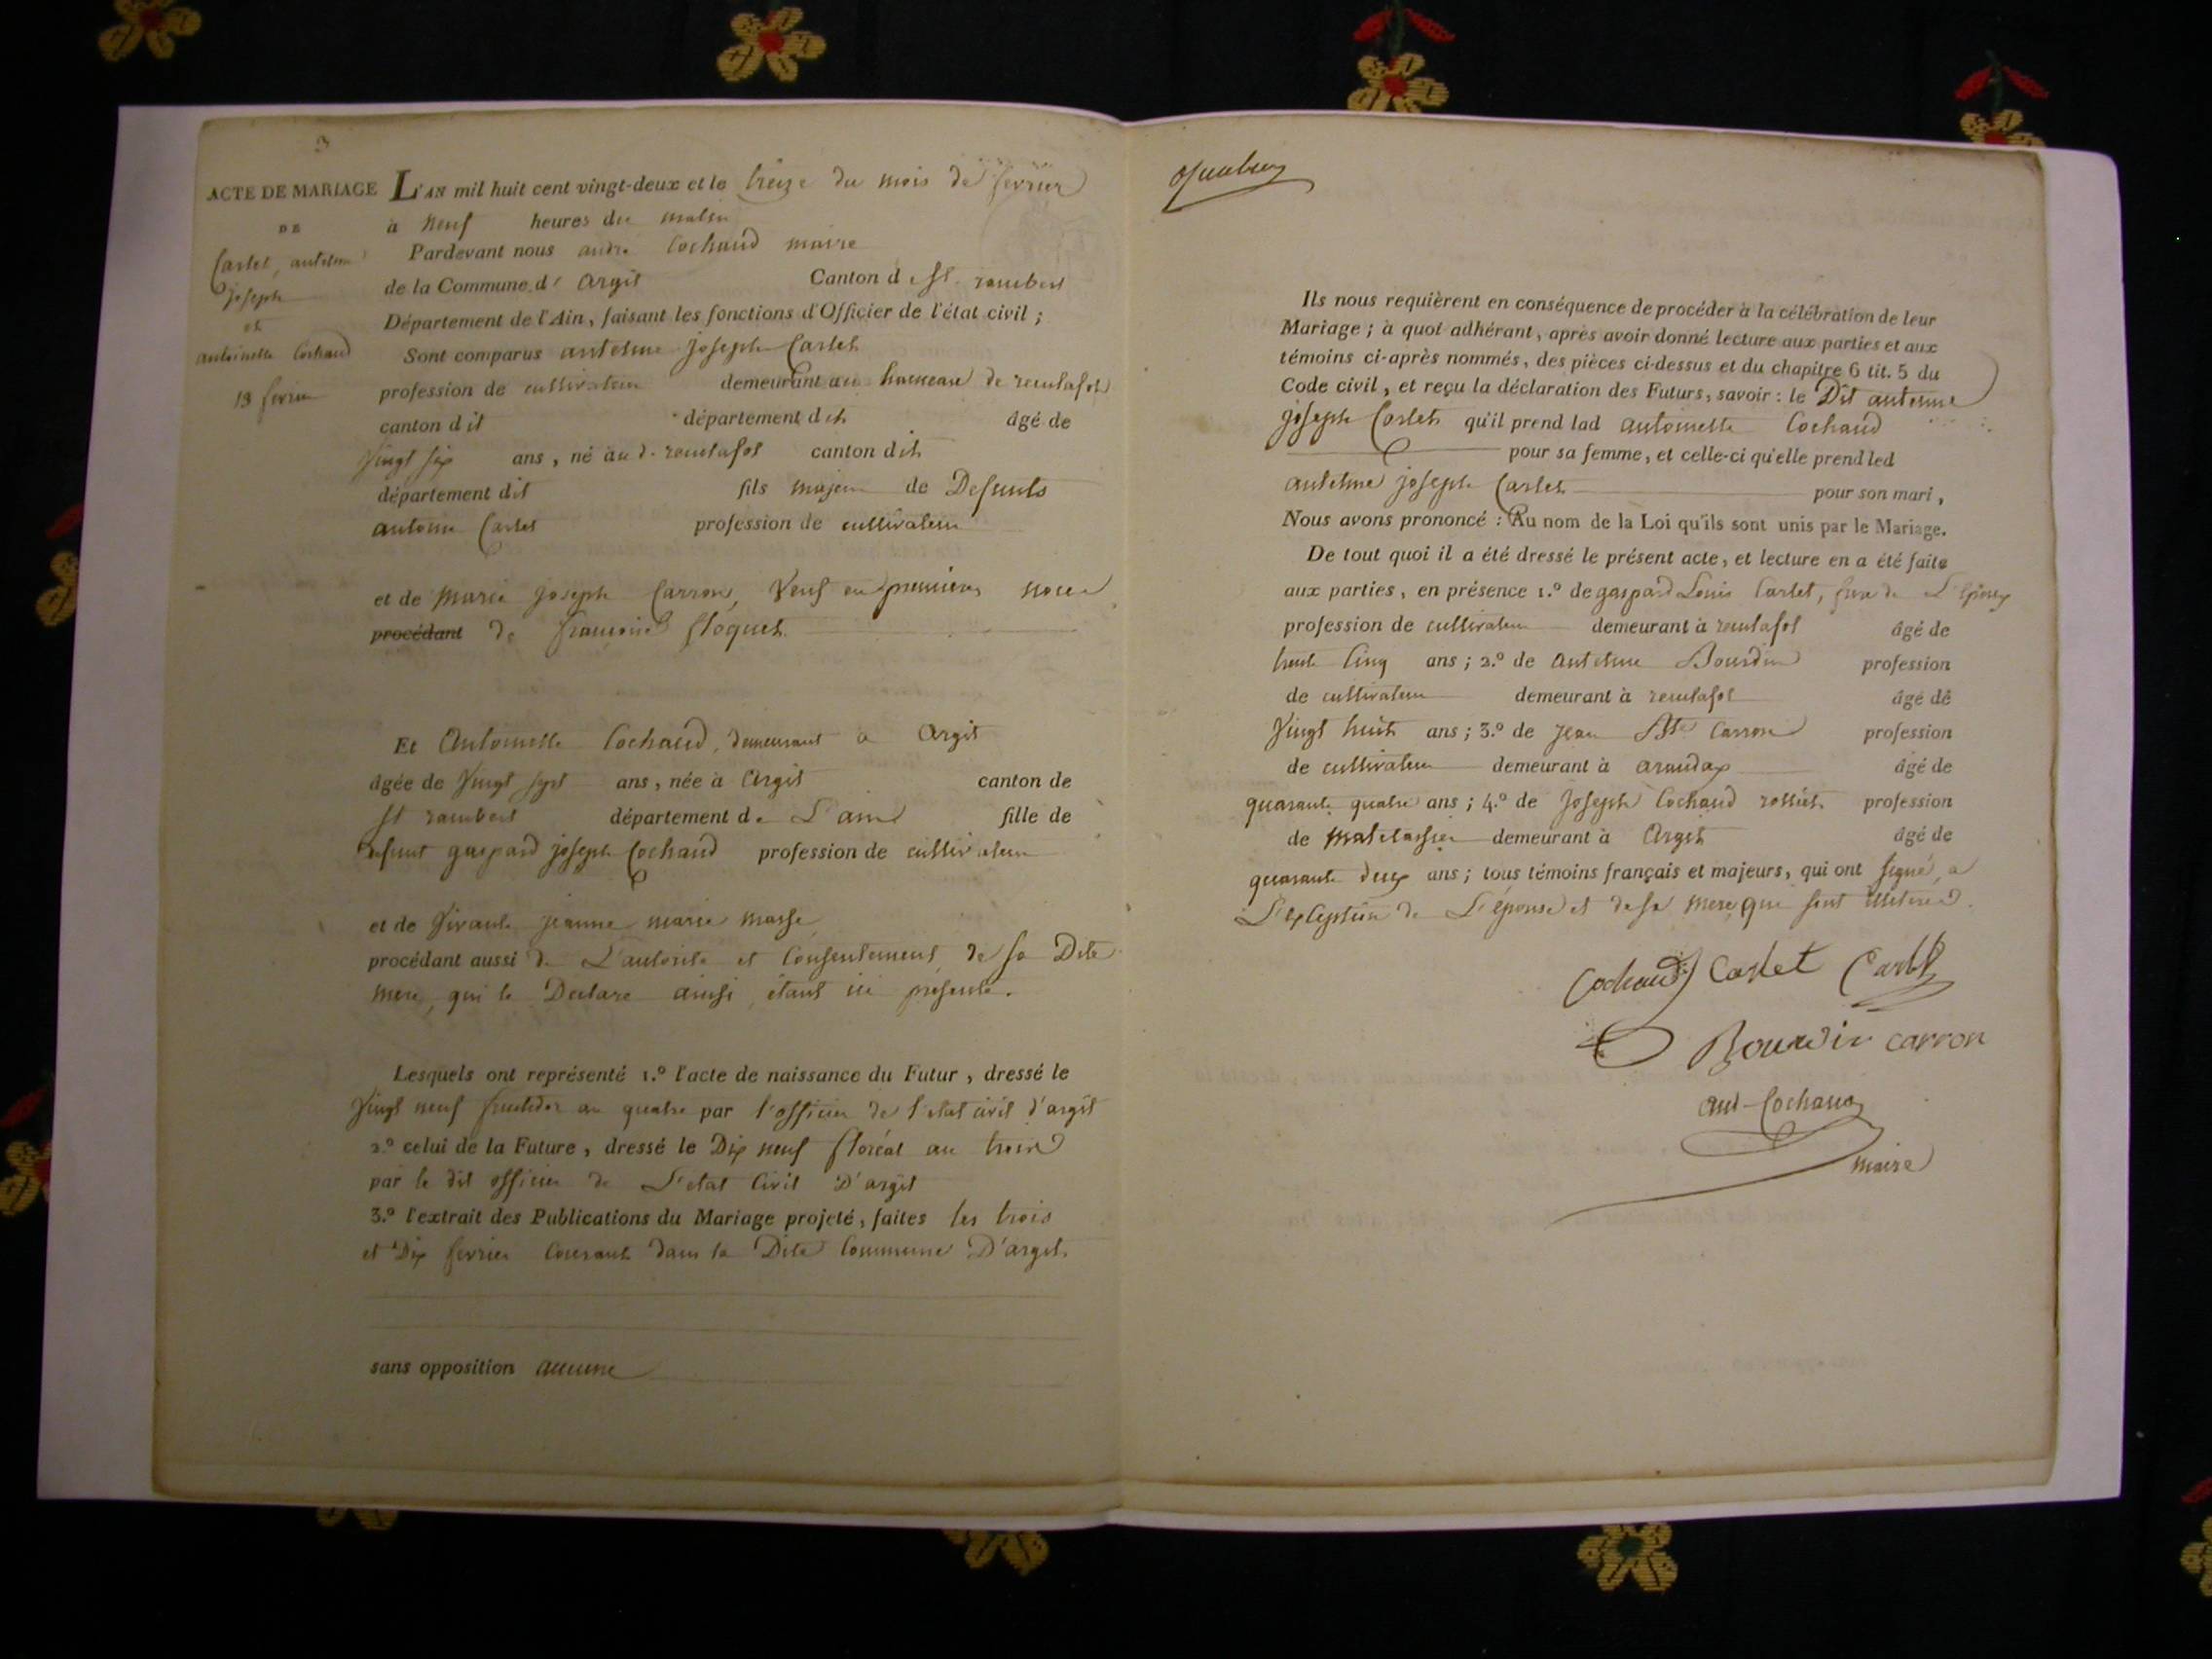 3
ACTE DE MARIAGE
DE
Carlet, antelme
joseph
et
antoinette Cochaud
13 fevrier
L'AN mil huit cent vingt-deux et le treize du mois de fevrier
à neuf heures du matin
Pardevant nous andré Cochaud maire
de la Commune d' Argit Canton de St. rambert
Département de l'Ain, faisant les fonctions d'Officier de l'état civil ;
Sont comparus antelme joseph Carlet
profession de cultivateur demeurant au hameau de reculafol
canton dit département dit âgé de
vingt six ans, né au d. reculafol canton dit
département dit fils majeur de Defunts
antoine Carlet profession de cultivateur
et de marie joseph Carron, Veuf en premieres noces
procédant de françoise floquet
Et Antoinette Cochaud, demeurant à Argit
âgée de Vingt sept ans, née à Argit canton de
St rambert département de L'ain fille de
defunt gaspard joseph Cochaud profession de cultivateur
et de Vivante jeanne marie masse
procédant aussi de L'autorité et Consentement de sa Dite
mere, qui le Declare ainsi, étant ici présente.
Lesquels ont représenté 1.º l'acte de naissance du Futur, dressé le
Vingt neuf fructidor an quatre par l'officier de l'etat civil d'argit
2.º celui de la Future, dressé le Dix neuf floréal an trois
par le dit officier de L'etat Civil D'argit
3.º l'extrait des Publications du Mariage projeté, faites les trois
et Dix fevrier Courant dans la Dite Commune D'argit.
sans opposition aucune
Ils nous requièrent en conséquence de procéder à la célébration de leur
Mariage ; à quoi adhérant, après avoir donné lecture aux parties et aux
témoins ci-après nommés, des pièces ci-dessus et du chapitre 6 tit. 5 du
Code civil, et reçu la déclaration des Futurs, savoir : le Dit antelme
joseph Carlet qu'il prend lad antoinette Cochaud
pour sa femme, et celle-ci qu'elle prend led
antelme joseph Carlet pour son mari,
Nous avons prononcé : Au nom de la Loi qu'ils sont unis par le Mariage.
De tout quoi il a été dressé le présent acte, et lecture en a été faite
aux parties, en présence 1.º de gaspard Louis Carlet, frere de L'Epoux
profession de cultivateur demeurant à reculafol âgé de
trente Cinq ans ; 2.º de Antelme Bourdin profession
de cultivateur demeurant à reculafol âgé de
Vingt huit ans ; 3.º de Jean Bte Carron profession
de cultivateur demeurant à arandax âgé de
quarante quatre ans ; 4.º de Joseph Cochaud profession
de Matelassier demeurant à Argit âgé de
quarante deux ans ; tous témoins français et majeurs, qui ont signé, a
L'exception de L'épouse et de sa mere que sont illiterés.
Cochaud Carlet Carlet
Bourdin carron
and Cochaud
maire